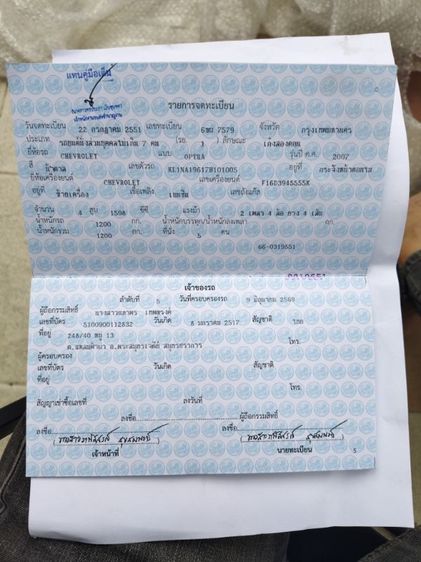 แทนคู่มือเดิม
รายการจดทะเบียน
วันจดทะเบียน 22 กรกฎาคม 2551 เลขทะเบียน 6ฆษ 7579 จังหวัด กรุงเทพมหานคร
ประเภท รถยนต์นั่งส่วนบุคคลไม่เกิน 7 คน (รย. 1) ลักษณะ เก๋งสองตอน
ยี่ห้อรถ CHEVROLET แบบ OPTRA รุ่นปี ค.ศ. 2007
สี น้ำตาล เลขตัวรถ KL1NA19617B101005 อยู่ที่
ยี่ห้อเครื่องยนต์ CHEVROLET เลขเครื่องยนต์ F16D3945555K
อยู่ที่ ซ้ายเครื่อง เชื้อเพลิง เบนซิน เลขถังแก๊ส
จำนวน 4 สูบ 1598 ซีซี แรงม้า 2 เพลา 4 ล้อ ยาง 4 เส้น
น้ำหนักรถ 1200 กก. น้ำหนักบรรทุก/น้ำหนักลงเพลา กก.
น้ำหนักรวม 1200 กก. ที่นั่ง 5 คน
66-0319551
เจ้าของรถ
ลำดับที่ 5 วันที่ครอบครองรถ 9 มิถุนายน 2569
ผู้ถือกรรมสิทธิ์
เลขที่บัตร 5100900112832 วันเกิด 2517 สัญชาติ ไทย
ที่อยู่ 248/40 หมู่ 13 โทร.
อ.พระสมุทรเจดีย์ สมุทรปราการ
ผู้ครอบครอง
เลขที่บัตร วันเกิด สัญชาติ
ที่อยู่ โทร.
สัญญาเช่าซื้อเลขที่ ลงวันที่
ลงชื่อ ผู้ถือกรรมสิทธิ์
ลงชื่อ ลงชื่อ
เจ้าหน้าที่ นายทะเบียน
5